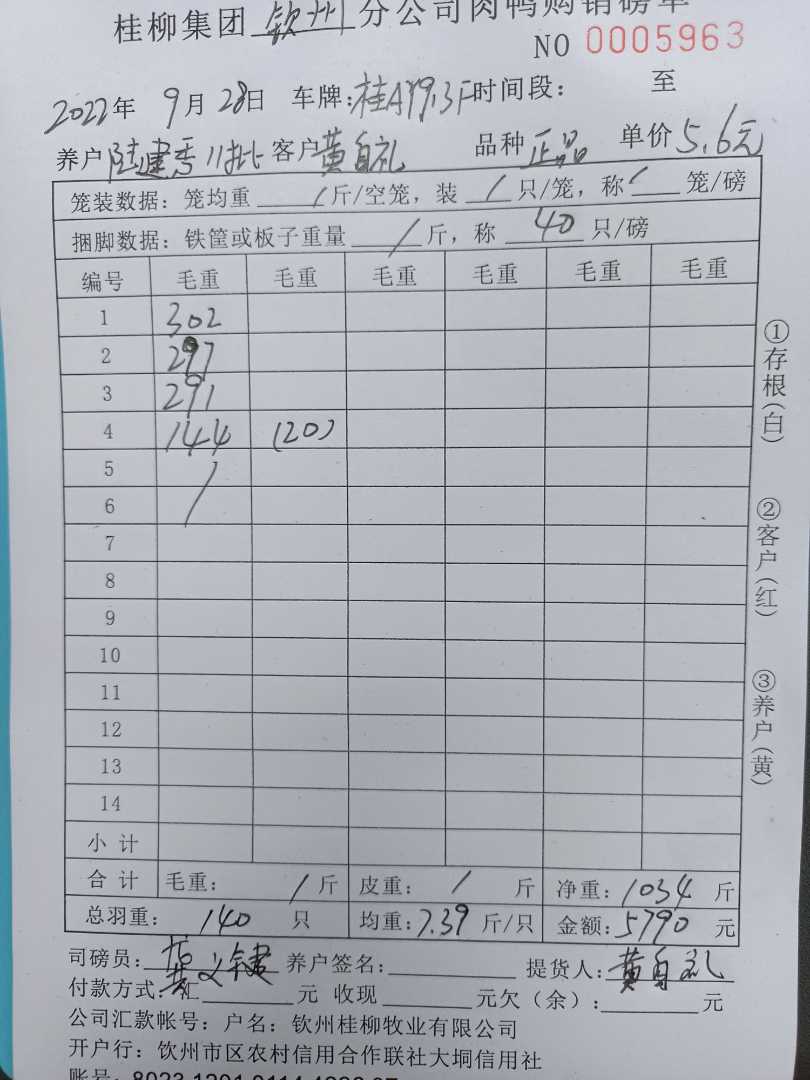 桂柳集团 钦州 分公司肉鸭购销磅单
NO 0005963
2022年 9月 28日 车牌: 时间段: 至
养户 陆建秀 11批 客户 黄自礼 品种 正品 单价 5.6元
笼装数据: 笼均重 / 斤/空笼, 装 / 只/笼, 称 / 笼/磅
捆脚数据: 铁筐或板子重量 / 斤, 称 40 只/磅
编号 毛重 毛重 毛重 毛重 毛重 毛重
1 302
2 297
3 291
4 144 (20)
5 /
6
7
8
9
10
11
12
13
14
小计
合计 毛重: / 斤 皮重: / 斤 净重: 1034 斤
总羽重: 140 只 均重: 7.39 斤/只 金额: 5790 元
司磅员: 养户签名: 提货人: 黄自礼
付款方式: 汇 元 收现 元欠(余): 元
公司汇款帐号: 户名: 钦州桂柳牧业有限公司
开户行: 钦州市区农村信用合作联社大垌信用社
①存根(白)
②客户(红)
③养户(黄)